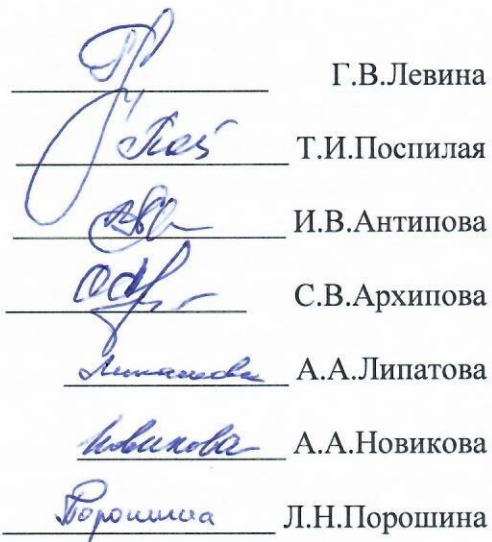 Г.В.Левина
Т.И.Поспилая
И.В.Антипова
С.В.Архипова
Липатова А.А.Липатова
Новикова А.А.Новикова
Порошина Л.Н.Порошина